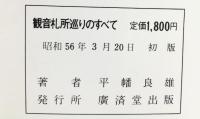 観音札所巡りのすべて　定価1,800円
昭和56年3月20日　初版
著者　平幡良雄
発行所　廣済堂出版